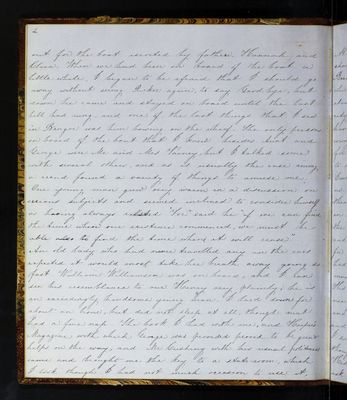 2
out for the boat escorted by father, Hannah and
Olive. When we had been on board of the boat a
little while, I began to be afraid that I should go
away without seeing again, to say Good bye, but
down he came and stayed on board until the last
bell had rung and one of the last things that I saw
in Bangor was him bowing on the wharf. The only persons
on board of the boat that I knew besides Aunt and
George and Mr and Mrs but I talked some
with several others, and as is usually the case away
a crowd found a variety of things to amuse me.
One young man grew very warm in a discussion on
religious subjects and seemed inclined to consider himself
as having always existed "For" said he "if we can find
the time when our existence commenced, we must be
able also to find the time where it will cease"
An old lady who had never travelled any in the cars
expected it would most take her breath away going so
fast. William Williamson was on board, and I could
see his resemblance to our Henry very plainly; he is
an exceedingly handsome young man. I laid down for
about an hour, but did not sleep at all, though Aunt
had a fine nap. The book I had with me, and Harper's
Magazine with which George was provided proved to be great
helps on the way, and Mr Cushing with his usual politeness
came and brought me the key to a state room, which
I took though I had not much occasion to use it,